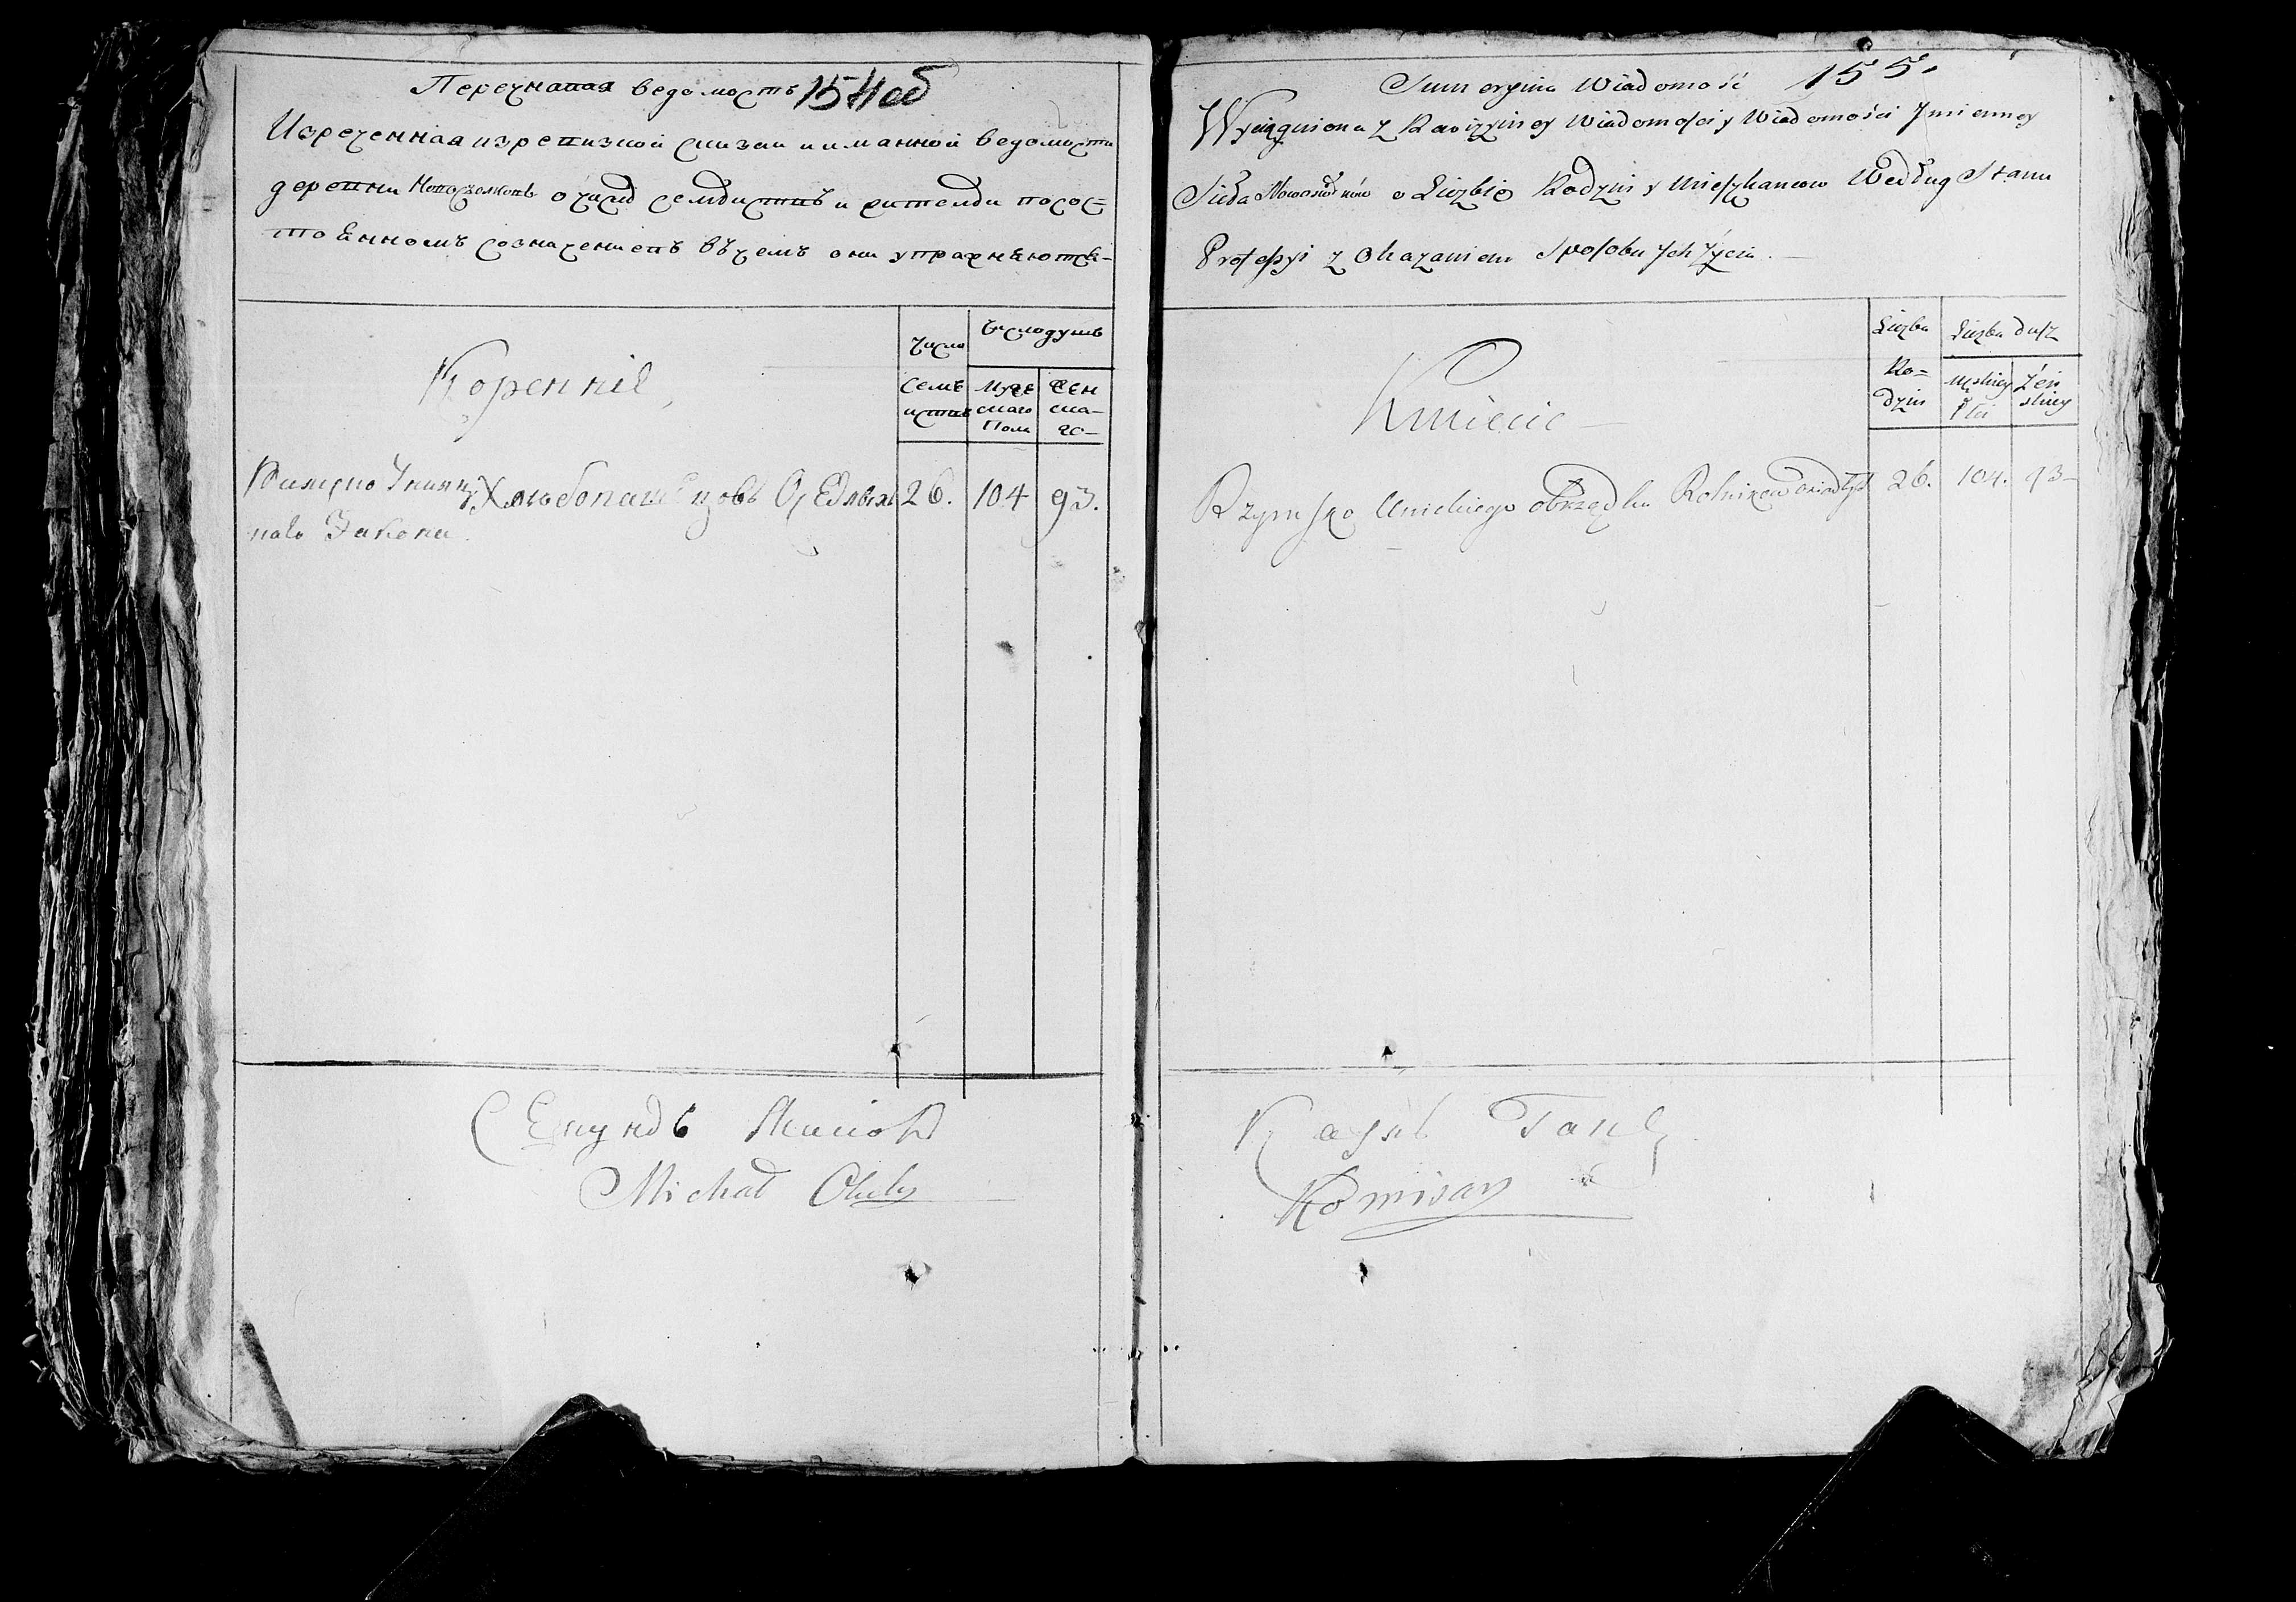 Перечневая ведомость 154об
Изреченная изревизкой сказки и иманной ведомости
деревни о числе семействъ и жителей посос=
тоянномъ созначениемъ въчемъ они упражняются-
Коренніе
Число
Семѣ
иствъ
Числодушъ
Муже
скаго
Пола
Жен
ска-
го-
Римско Униат
наго Закона
Хлѣбопашцовъ Оседлыхъ 26. 104 93.
Michał
Sumeryina Wiadomość 155.
Wyciągniona z Rewizyiney Wiadomości y Wiadomości Jmienney
Sioła o Liczbie Rodzin y Mieszkancow Według Stanu
Professyi z Okazaniem Sposobu Jch Życia.
Kmiecie
Liczba
Ro=
dzin
Liczba dusz
Męskiey
Płci
Żeń
skiey
Rzymsko Unickiego obrządku Rolnikow osiadłych 26. 104. 93-
Komisarz